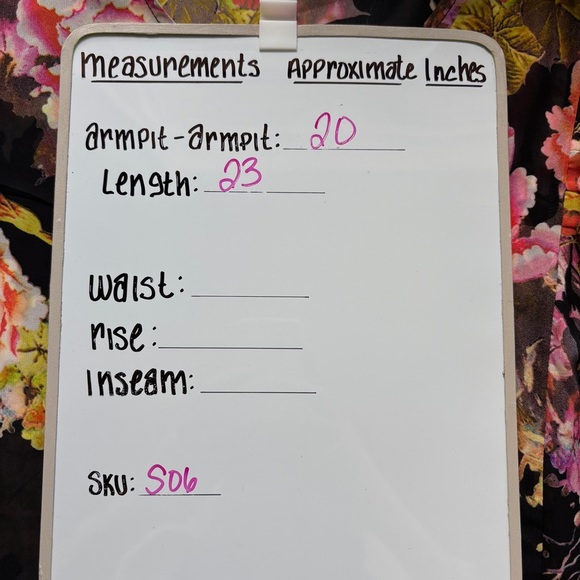 Measurements Approximate Inches
armpit-armpit: 20
Length: 23
waist:
rise:
Inseam:
SKU: S06